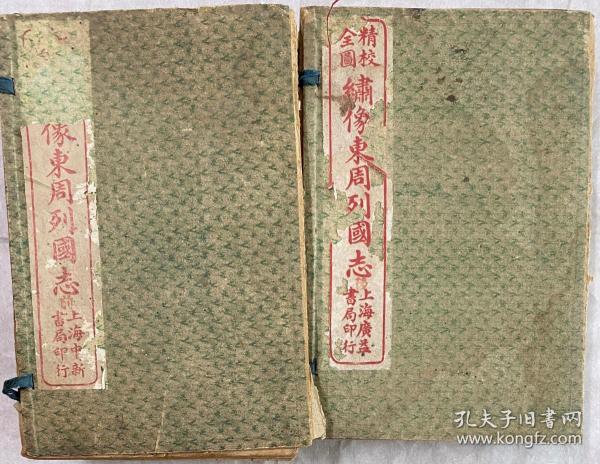 像東周列國志
上海中新
書局印行
精校
全圖
繡像東周列國志
上海廣益
書局印行
孔夫子旧书网
www.kongfz.com